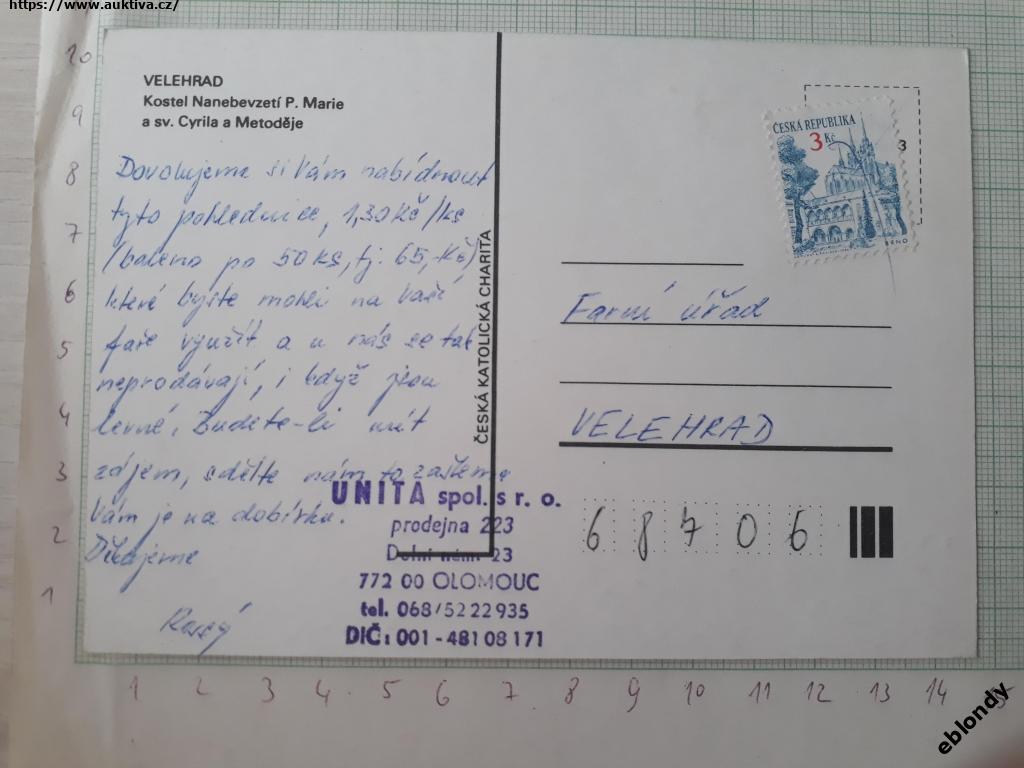 https://www.auktiva.cz/
VELEHRAD
Kostel Nanebevzetí P. Marie
a sv. Cyrila a Metoděje
Dovolujeme si Vám nabídnout
tyto pohlednice, 1,30 Kč/ks
/baleno po 50 ks, tj. 65,-Kč/
které byste mohli na Vaší
faře využít a u nás se tak
neprodávají, i když jsou
levné. Budete-li mít
zájem, sdělte nám to, zašleme
Vám je na dobírku.
Děkujeme
ČESKÁ KATOLICKÁ CHARITA
UNITA spol. s r. o.
prodejna 223
Dolní nám 23
772 00 OLOMOUC
tel. 068/52 22 935
DIČ: 001-481 08 171
ČESKÁ REPUBLIKA
3 Kč
BRNO
3
Farní úřad
VELEHRAD
68706
10
9
8
7
6
5
4
3
2
1
1 2 3 4 5 6 7 8 9 10 11 12 13 14
eblondy